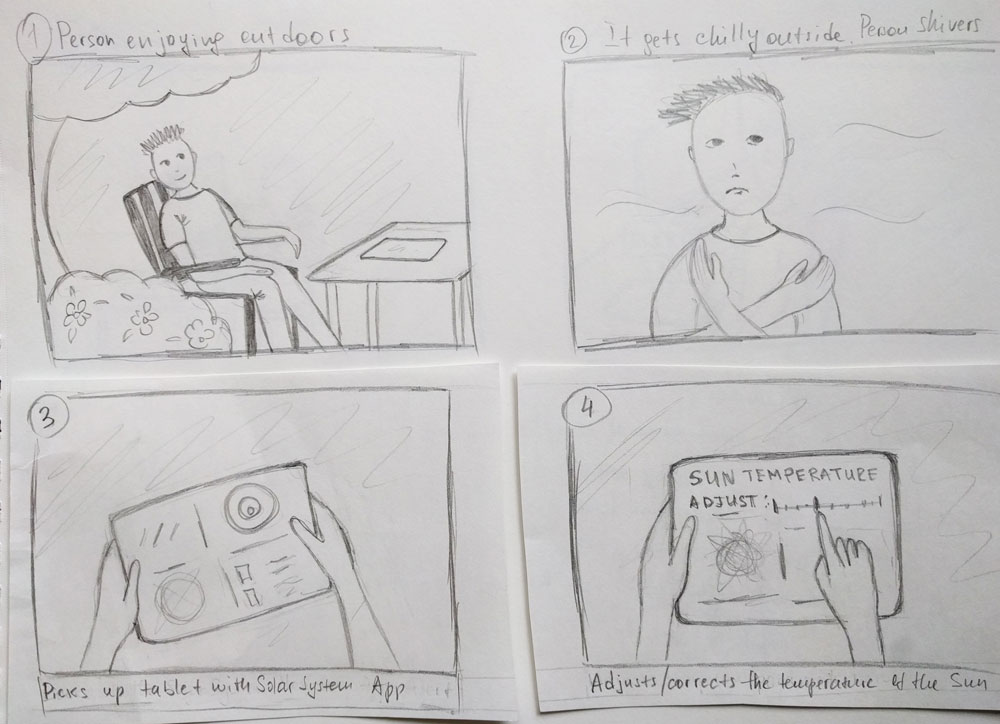 1 Person enjoying outdoors
2 It gets chilly outside. Person shivers
3
Picks up tablet with Solar System App
4
SUN TEMPERATURE
ADJUST:
Adjusts/corrects the temperature of the Sun